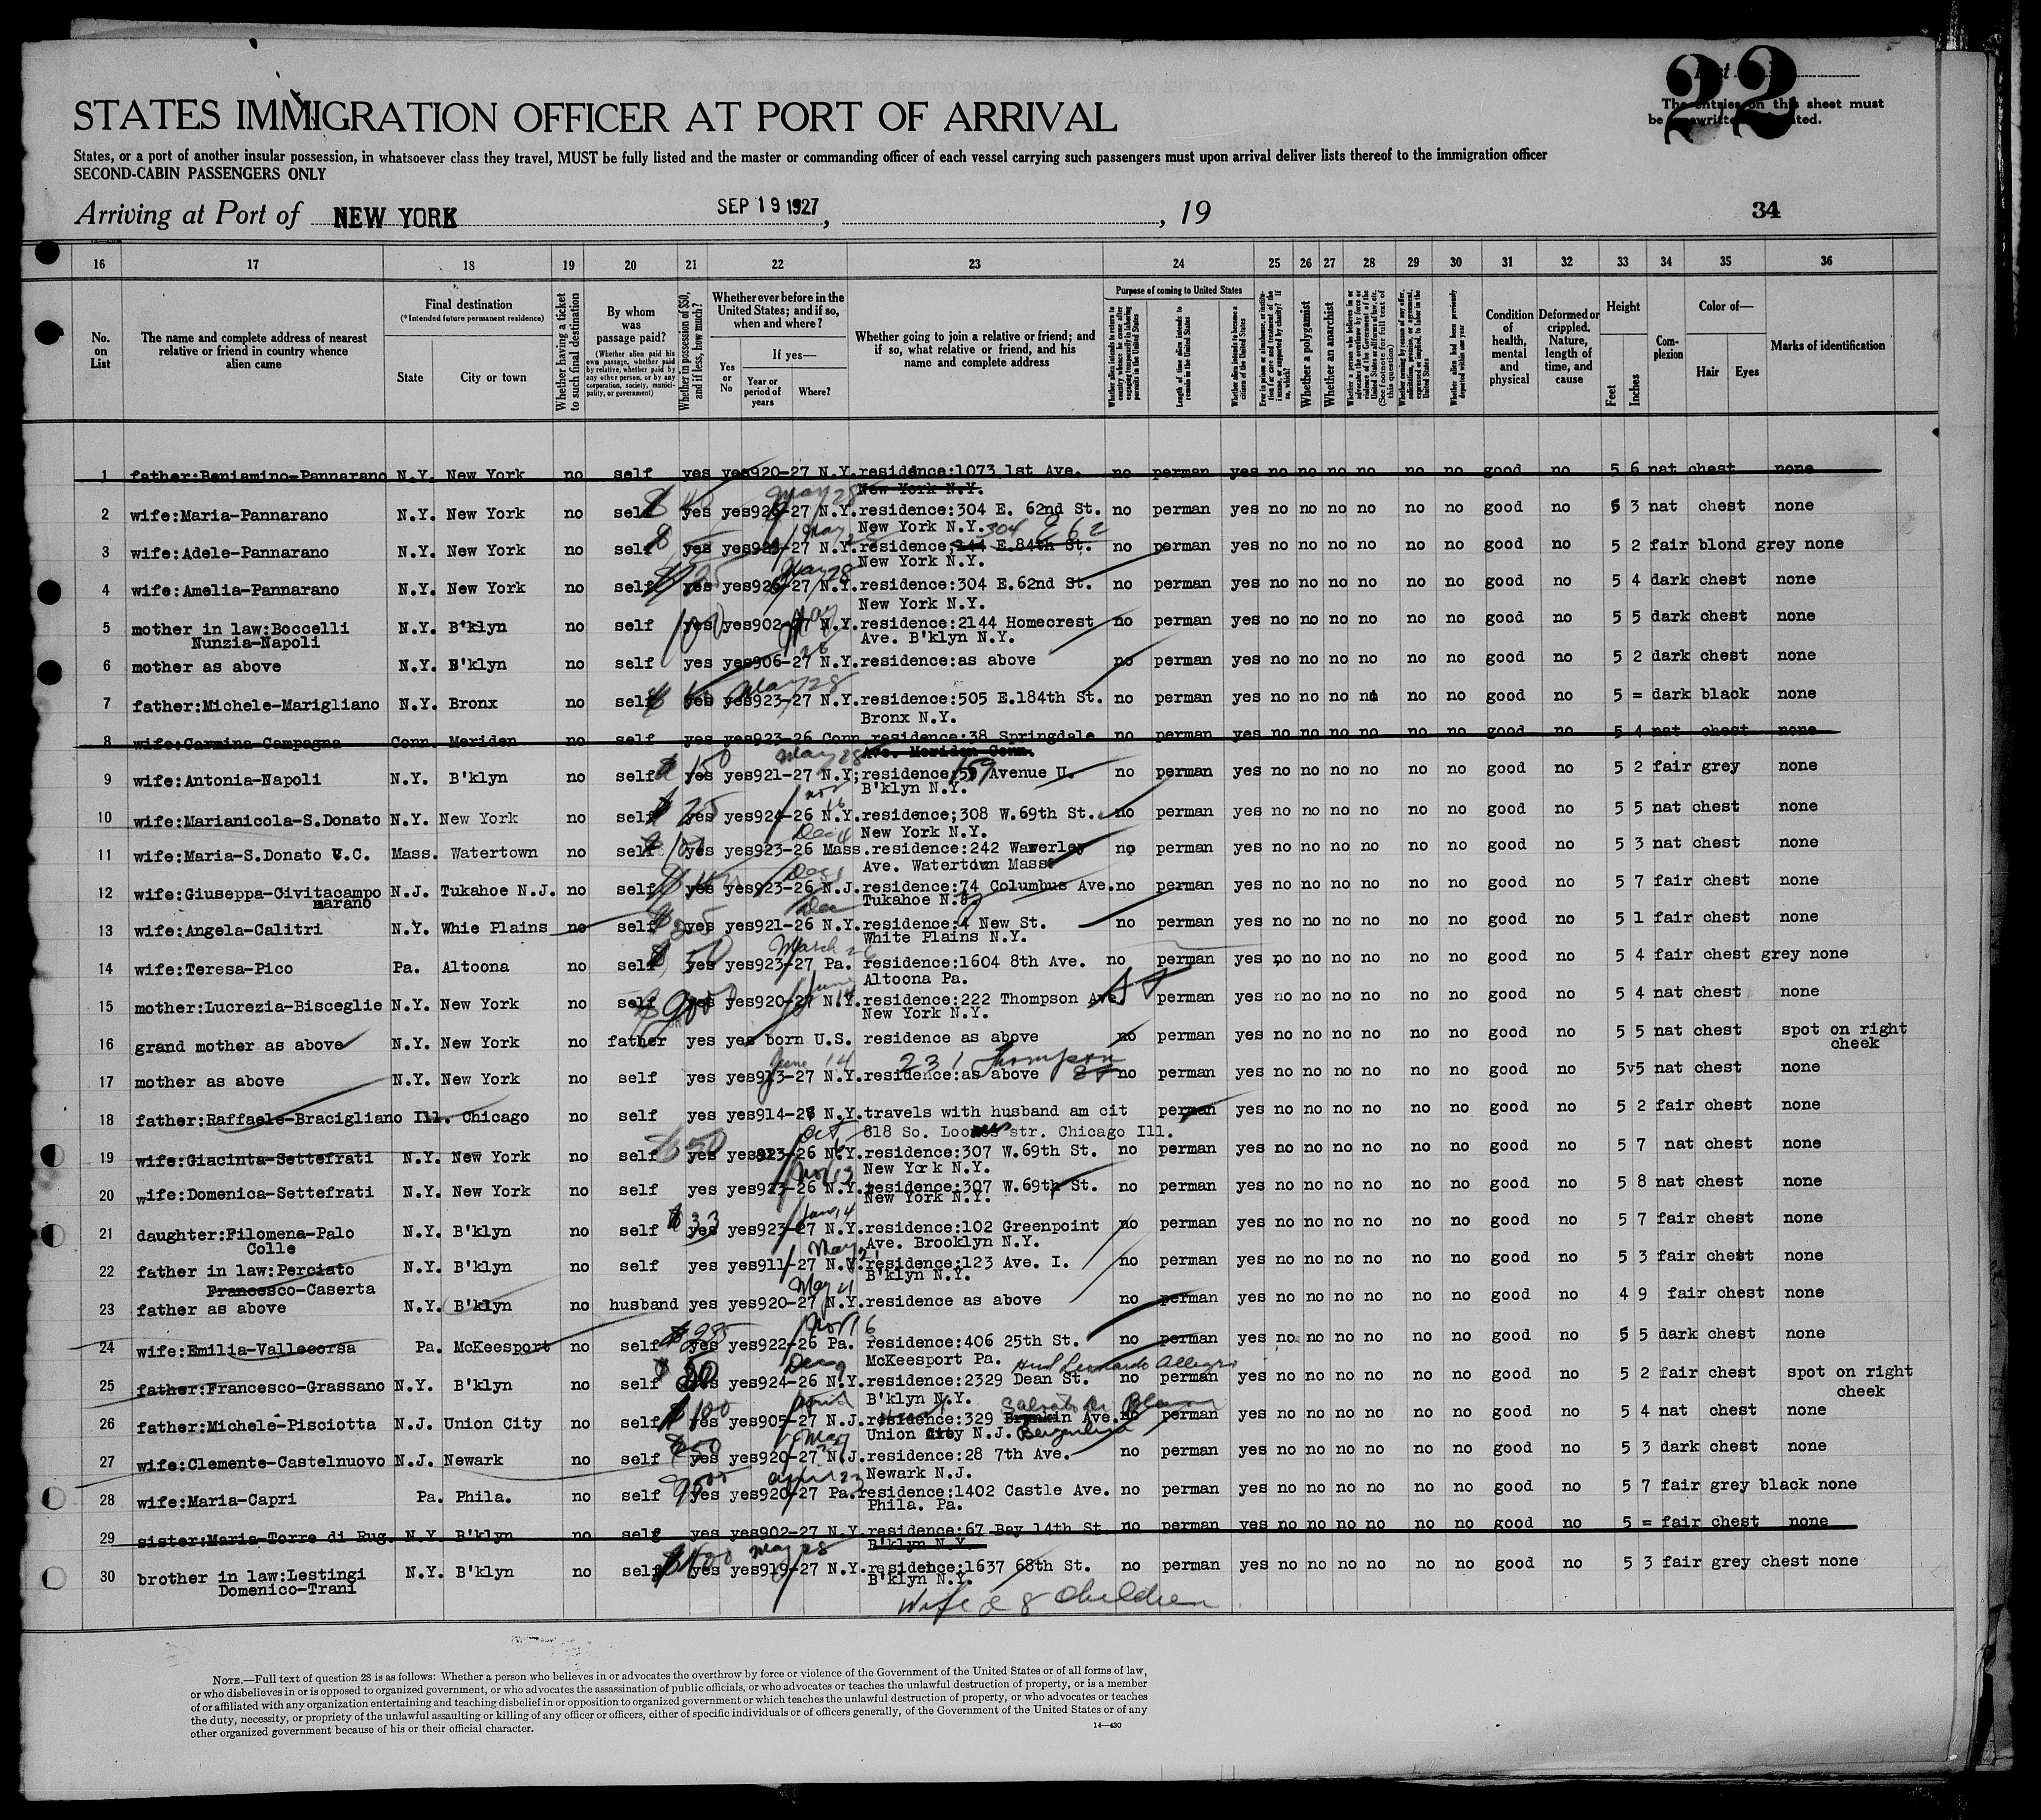 22
STATES IMMIGRATION OFFICER AT PORT OF ARRIVAL
The entries on this sheet must
be typewritten or printed.
States, or a port of another insular possession, in whatsoever class they travel, MUST be fully listed and the master or commanding officer of each vessel carrying such passengers must upon arrival deliver lists thereof to the immigration officer
SECOND-CABIN PASSENGERS ONLY
Arriving at Port of NEW YORK SEP 19 1927, , 19 34
16 17 18 19 20 21 22 23 24 25 26 27 28 29 30 31 32 33 34 35 36
No. on List
The name and complete address of nearest relative or friend in country whence alien came
Final destination
(*Intended future permanent residence)
State
City or town
Whether having a ticket to such final destination
By whom was passage paid?
(Whether alien paid his own passage, whether paid by relative, whether paid by any other person, or by any corporation, society, municipality, or government)
Whether in possession of $50, and if less, how much?
Whether ever before in the United States; and if so, when and where?
Yes or No
If yes—
Year or period of years
Where?
Whether going to join a relative or friend; and if so, what relative or friend, and his name and complete address
Purpose of coming to United States
Whether alien intends to return to country whence he came after engaging temporarily in laboring pursuits in the United States
Length of time alien intends to remain in the United States
Whether alien intends to become a citizen of the United States
Whether a polygamist
Whether an anarchist
Whether alien had been previously deported within one year
Condition of health, mental and physical
Deformed or crippled. Nature, length of time, and cause
Height
Feet
Inches
Complexion
Color of—
Hair
Eyes
Marks of identification
1 father:Beniamino-Pannarano N.Y. New York no self yes yes920-27 N.Y.residence:1073 1st Ave. no perman yes no no no no no no good no 5 6 nat chest none
New York N.Y.
May 28
2 wife:Maria-Pannarano N.Y. New York no self yes yes926-27 N.Y.residence:304 E. 62nd St. no perman yes no no no no no no good no 5 3 nat chest none
New York N.Y. 304 E 62
3 wife:Adele-Pannarano N.Y. New York no self yes yes923-27 N.Y.residence;244 E.84th St. no perman yes no no no no no no good no 5 2 fair blond grey none
New York N.Y.
May 28
4 wife:Amelia-Pannarano N.Y. New York no self yes yes926-27 N.Y.residence:304 E.62nd St. no perman yes no no no no no no good no 5 4 dark chest none
New York N.Y.
5 mother in law:Boccelli N.Y. B'klyn no self yes yes902-27 N.Y.residence:2144 Homecrest no perman yes no no no no no no good no 5 5 dark chest none
Nunzia-Napoli Ave. B'klyn N.Y.
6 mother as above N.Y. B'klyn no self yes yes906-27 N.Y.residence:as above no perman yes no no no no no no good no 5 2 dark chest none
May 28
7 father:Michele-Marigliano N.Y. Bronx no self yes yes923-27 N.Y.residence:505 E.184th St. no perman yes no no no no no no good no 5 = dark black none
Bronx N.Y.
8 wife:Carmina-Campagna Conn. Meriden no self yes yes923-26 Conn.residence:38 Springdale no perman yes no no no no no no good no 5 4 nat chest none
Ave. Meriden Conn.
May 28
9 wife:Antonia-Napoli N.Y. B'klyn no self 150 yes yes921-27 N.Y;residence;59 159 Avenue U. no perman yes no no no no no no good no 5 2 fair grey none
B'klyn N.Y.
Nov 16
10 wife:Marianicola-S.Donato N.Y. New York no self $25 yes yes924-26 N.Y.residence;308 W.69th St. no perman yes no no no no no no good no 5 5 nat chest none
Dec 4 New York N.Y.
11 wife:Maria-S.Donato V.C. Mass. Watertown no self yes yes923-26 Mass.residence:242 Waverley no perman yes no no no no no no good no 5 3 nat chest none
Ave. Watertown Mass
12 wife:Giuseppa-Civitacampo N.J. Tukahoe N.J. no self yes yes923-26 N.J.residence:74 Columbus Ave.no perman yes no no no no no no good no 5 7 fair chest none
marano Tukahoe N.J.
Dec
13 wife:Angela-Calitri N.Y. Whie Plains no self yes yes921-26 N.Y.residence:4 New St. no perman yes no no no no no no good no 5 1 fair chest none
White Plains N.Y.
March 26
14 wife:Teresa-Pico Pa. Altoona no self $50 yes yes923-27 Pa. residence:1604 8th Ave. no perman yes no no no no no no good no 5 4 fair chest grey none
Altoona Pa.
June 14
15 mother:Lucrezia-Bisceglie N.Y. New York no self yes yes920-27 N.Y.residence:222 Thompson Ave. St perman yes no no no no no no good no 5 4 nat chest none
New York N.Y.
16 grand mother as above N.Y. New York no father yes yes born U.S. residence as above no perman yes no no no no no no good no 5 5 nat chest spot on right
cheek
June 14 231 Thompson
17 mother as above N.Y. New York no self yes yes913-27 N.Y.residence:as above St no perman yes no no no no no no good no 5v5 nat chest none
18 father:Raffaele-Bracigliano Ill. Chicago no self yes yes914-26 N.Y.travels with husband am cit perman yes no no no no no no good no 5 2 fair chest none
Oct 818 So. Loomis str. Chicago Ill.
19 wife:Giacinta-Settefrati N.Y. New York no self $50 yes yes923-26 N.Y.residence:307 W.69th St. no perman yes no no no no no no good no 5 7 nat chest none
Nov 13 New York N.Y.
20 wife:Domenica-Settefrati N.Y. New York no self yes yes923-26 N.Y.residence:307 W.69th St. no perman yes no no no no no no good no 5 8 nat chest none
New York N.Y.
21 daughter:Filomena-Palo N.Y. B'klyn no self $33 yes yes923-27 N.Y.residence:102 Greenpoint no perman yes no no no no no no good no 5 7 fair chest none
Colle Ave. Brooklyn N.Y.
May 21
22 father in law:Perciato N.Y. B'klyn no self yes yes911-27 N.Y.residence:123 Ave. I. no perman yes no no no no no no good no 5 3 fair chest none
Francesco-Caserta B'klyn N.Y.
May 21
23 father as above N.Y. B'klyn no husband yes yes920-27 N.Y.residence as above no perman yes no no no no no no good no 4 9 fair chest none
Nov 16
24 wife:Emilia-Vallecorsa Pa. McKeesport no self yes yes922-26 Pa. residence:406 25th St. no perman yes no no no no no no good no 5 5 dark chest none
McKeesport Pa.
Dec 9 Leonardo Allegro
25 father:Francesco-Grassano N.Y. B'klyn no self 50 yes yes924-26 N.Y.residence:2329 Dean St. no perman yes no no no no no no good no 5 2 fair chest spot on right
April B'klyn N.Y. cheek
26 father:Michele-Pisciotta N.J. Union City no self $100 yes yes905-27 N.J.residence:329 Ave.no perman yes no no no no no no good no 5 4 nat chest none
Union City N.J. Bergenline
27 wife:Clemente-Castelnuovo N.J. Newark no self yes yes920-27 N.J.residence:28 7th Ave. no perman yes no no no no no no good no 5 3 dark chest none
April 23 Newark N.J.
28 wife:Maria-Capri Pa. Phila. no self yes yes920-27 Pa.residence:1402 Castle Ave. no perman yes no no no no no no good no 5 7 fair grey black none
Phila. Pa.
29 sister:Maria-Torre di Rug. N.Y B'klyn no self yes yes902-27 N.Y.residence:67 Bay 14th St no perman yes no no no no no no good no 5 = fair chest none
B'klyn N.Y.
May 28
30 brother in law:Lestingi N.Y. B'klyn no self yes yes919-27 N.Y.residence:1637 68th St. no perman yes no no no no no no good no 5 3 fair grey chest none
Domenico-Trani B'klyn N.Y.
Wife & 8 children
NOTE.—Full text of question 28 is as follows: Whether a person who believes in or advocates the overthrow by force or violence of the Government of the United States or of all forms of law,
or who disbelieves in or is opposed to organized government, or who advocates the assassination of public officials, or who advocates or teaches the unlawful destruction of property, or is a member
of or affiliated with any organization entertaining and teaching disbelief in or opposition to organized government or which teaches the unlawful destruction of property, or who advocates or teaches
the duty, necessity, or propriety of the unlawful assaulting or killing of any officer or officers, either of specific individuals or of officers generally, of the Government of the United States or of any
other organized government because of his or their official character.
14—430